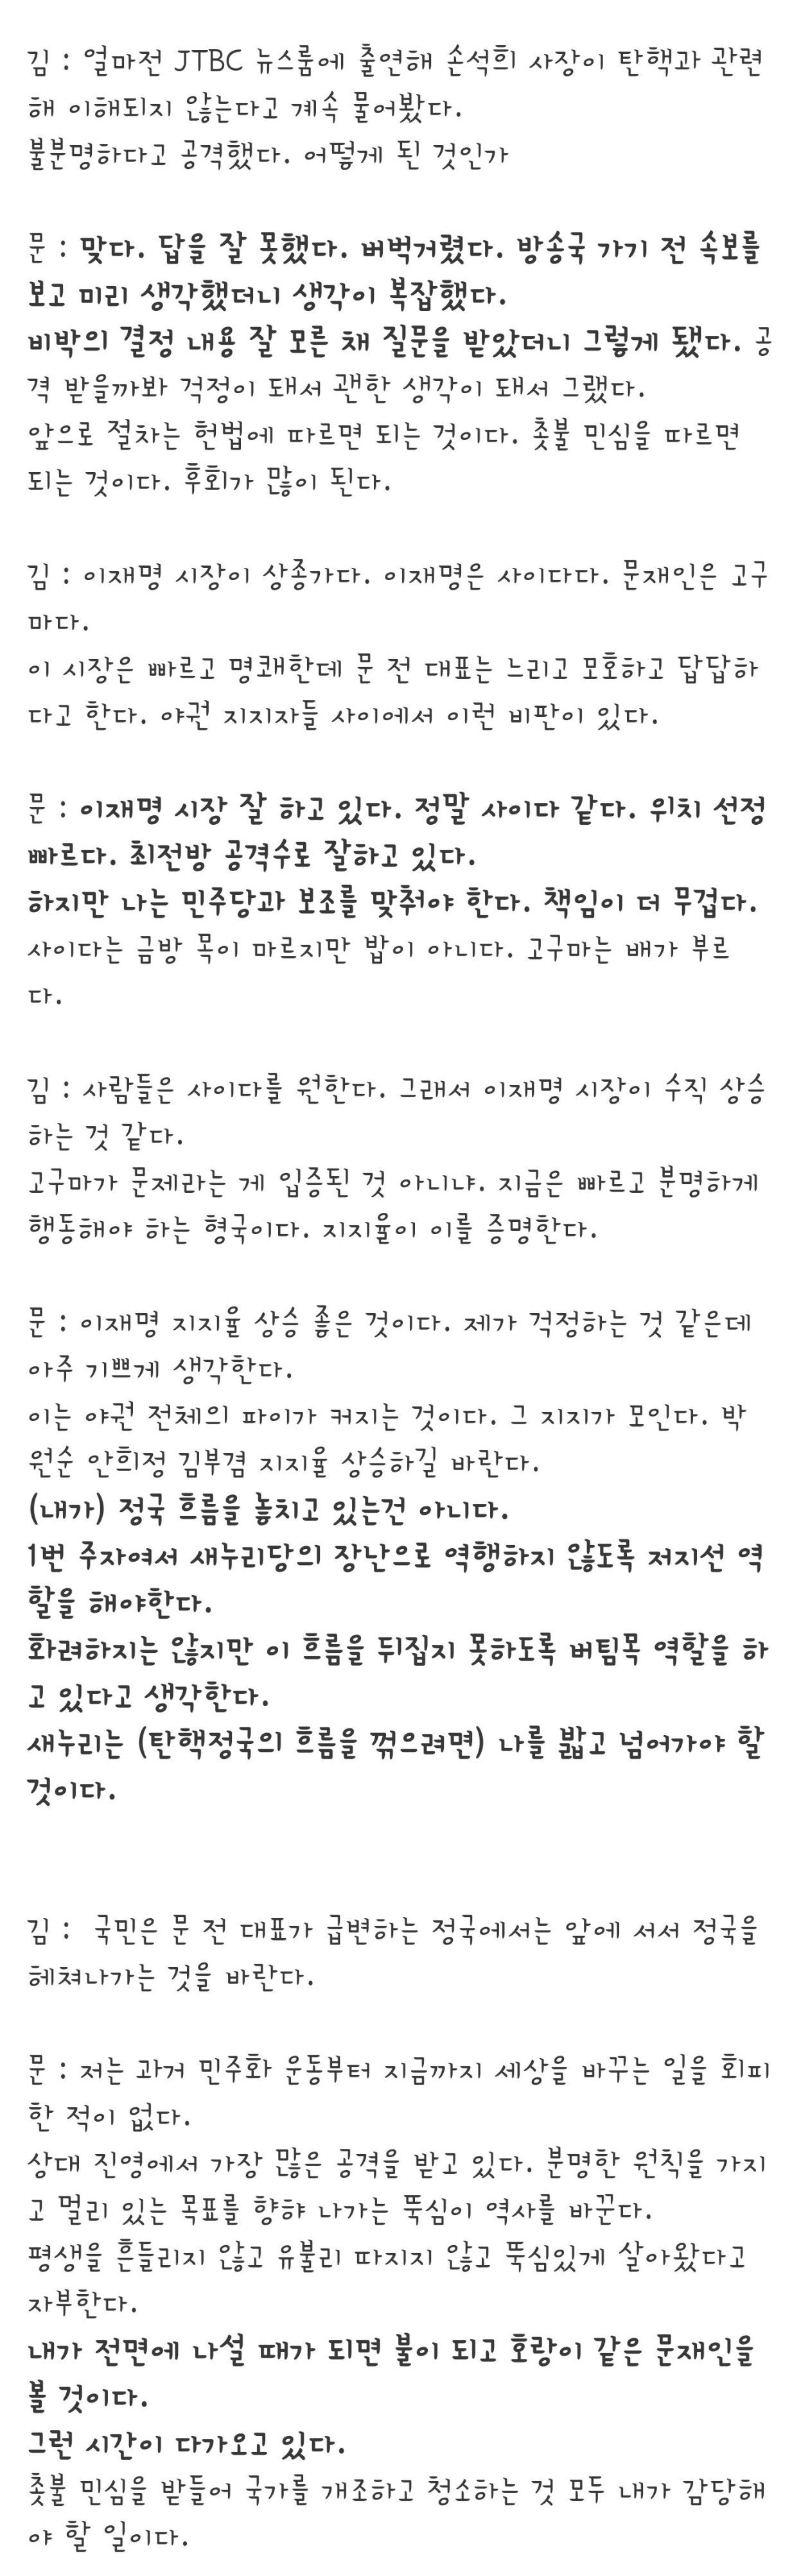 김 : 얼마전 JTBC 뉴스룸에 출연해 손석희 사장이 탄핵과 관련
해 이해되지 않는다고 계속 물어봤다.
불분명하다고 공격했다. 어떻게 된 것인가
문 : 맞다. 답을 잘 못했다. 버벅거렸다. 방송국 가기 전 속보를
보고 미리 생각했더니 생각이 복잡했다.
비박의 결정 내용 잘 모른 채 질문을 받았더니 그렇게 됐다. 공
격 받을까봐 걱정이 돼서 괜한 생각이 돼서 그랬다.
앞으로 절차는 헌법에 따르면 되는 것이다. 촛불 민심을 따르면
되는 것이다. 후회가 많이 된다.
김 : 이재명 시장이 상종가다. 이재명은 사이다다. 문재인은 고구
마다.
이 시장은 빠르고 명쾌한데 문 전 대표는 느리고 모호하고 답답하
다고 한다. 야권 지지자들 사이에서 이런 비판이 있다.
문 : 이재명 시장 잘 하고 있다. 정말 사이다 같다. 위치 선정
빠르다. 최전방 공격수로 잘하고 있다.
하지만 나는 민주당과 보조를 맞춰야 한다. 책임이 더 무겁다.
사이다는 금방 목이 마르지만 밥이 아니다. 고구마는 배가 부르
다.
김 : 사람들은 사이다를 원한다. 그래서 이재명 시장이 수직 상승
하는 것 같다.
고구마가 문제라는 게 입증된 것 아니냐. 지금은 빠르고 분명하게
행동해야 하는 형국이다. 지지율이 이를 증명한다.
문 : 이재명 지지율 상승 좋은 것이다. 제가 걱정하는 것 같은데
아주 기쁘게 생각한다.
이는 야권 전체의 파이가 커지는 것이다. 그 지지가 모인다. 박
원순 안희정 김부겸 지지율 상승하길 바란다.
(내가) 정국 흐름을 놓치고 있는건 아니다.
1번 주자여서 새누리당의 장난으로 역행하지 않도록 저지선 역
할을 해야한다.
화려하지는 않지만 이 흐름을 뒤집지 못하도록 버팀목 역할을 하
고 있다고 생각한다.
새누리는 (탄핵정국의 흐름을 꺾으려면) 나를 밟고 넘어가야 할
것이다.
김 : 국민은 문 전 대표가 급변하는 정국에서는 앞에 서서 정국을
헤쳐나가는 것을 바란다.
문 : 저는 과거 민주화 운동부터 지금까지 세상을 바꾸는 일을 회피
한 적이 없다.
상대 진영에서 가장 많은 공격을 받고 있다. 분명한 원칙을 가지
고 멀리 있는 목표를 향햐 나가는 뚝심이 역사를 바꾼다.
평생을 흔들리지 않고 유불리 따지지 않고 뚝심있게 살아왔다고
자부한다.
내가 전면에 나설 때가 되면 불이 되고 호랑이 같은 문재인을
볼 것이다.
그런 시간이 다가오고 있다.
촛불 민심을 받들어 국가를 개조하고 청소하는 것 모두 내가 감당해
야 할 일이다.